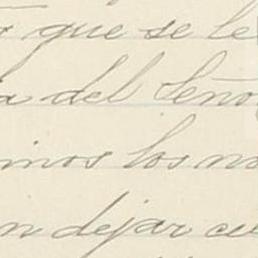 que se le
a del Señor
mos los no
n dejar cu